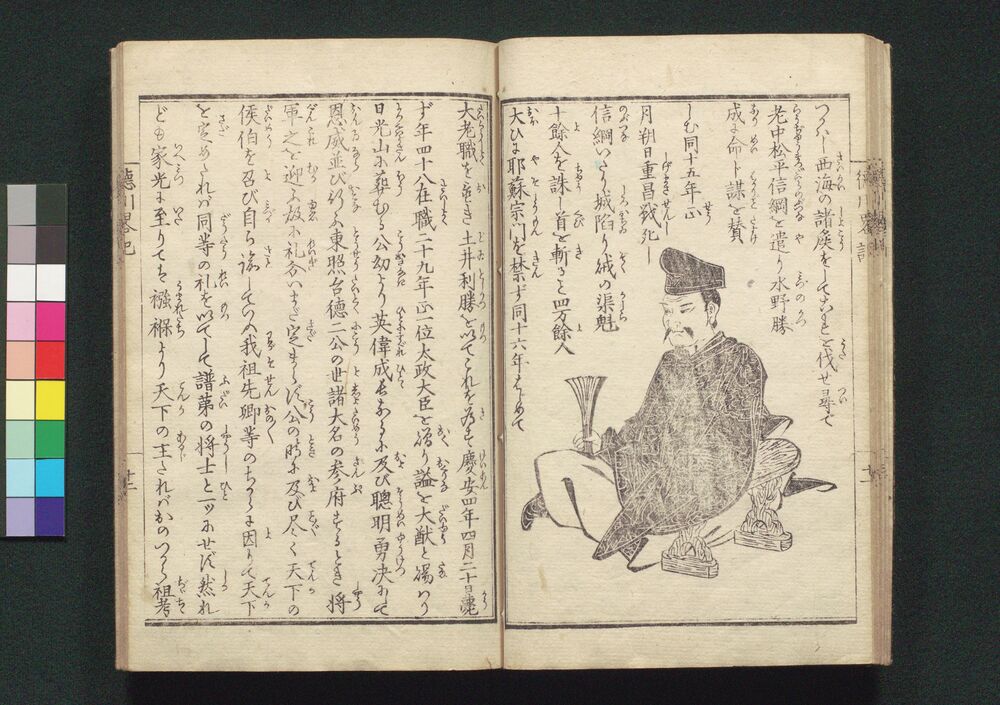 つかハし西海の諸侯をしてこれを伐せ尋で
老中松平信綱を遣り水野勝
成に命ト謀を賛
しむ同十五年正
月朔日重昌戦死し
信綱いたり城陥り賊の渠魁
十餘人を誅し首を斬ること四万餘人
大ひに耶蘇宗門を禁ず同十六年はじめて
大老職を置き土井利勝を以てこれを為す慶安四年四月二十日薨
ず年四十八在職二十九年正一位太政大臣を贈り謚を大猷と賜はり
日光山に葬むる公幼より英偉成長なるに及び聰明勇决にて
恩威並び行ふ東照台德二公の世諸大名の参府するとき将
軍之を迎ふ故に礼分いまだ定まらず公の時に及び尽く天下の
侯伯を召び自ら諭していの我祖先卿等のちからに因りて天下
を定めたれバ同等の礼を以てして譜第の将士と一ツにせず然れ
ども家光に至りてハ襁褓より天下の主たれバおのづから祖考
德川畧記